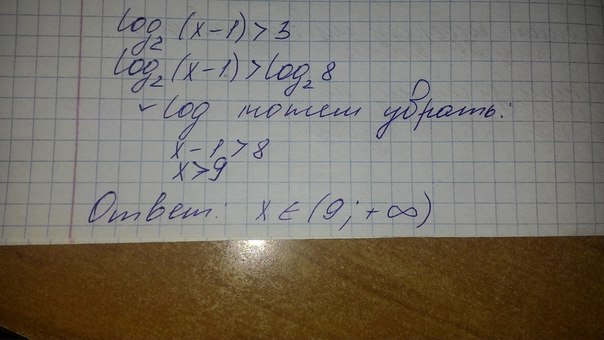 log₂ (x-1)>3
log₂ (x-1)>log₂ 8
log можем убрать:
x-1>8
x>9
Ответ: x∈(9;+∞)